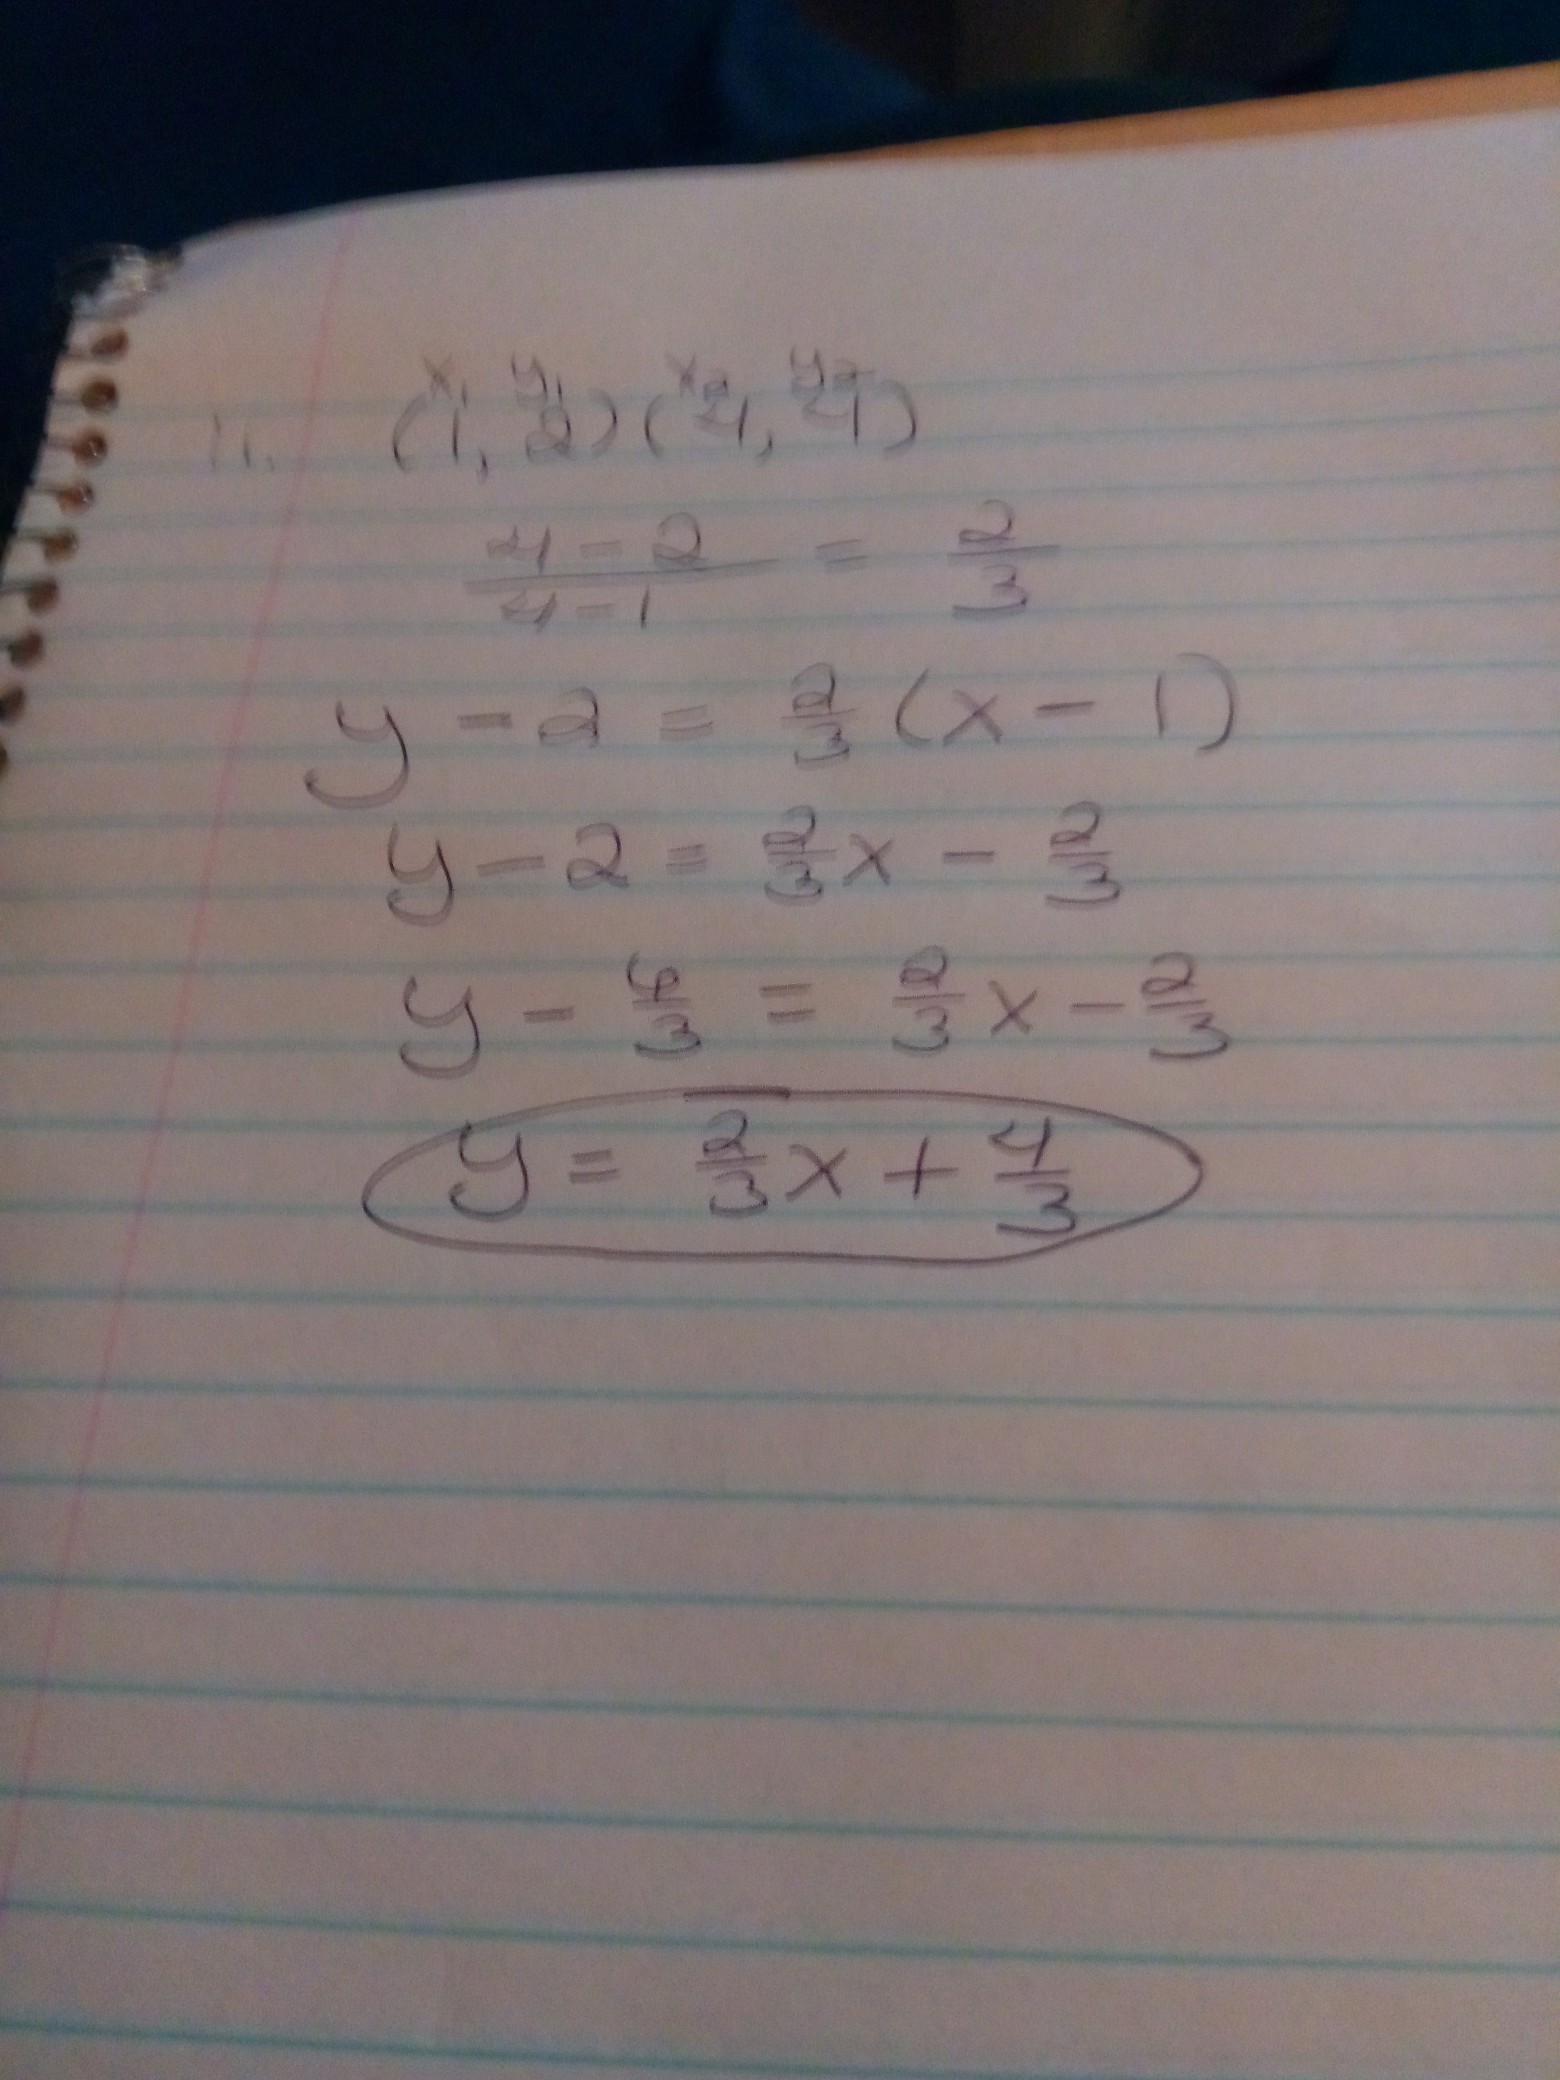 x₁ y₁ x₂ y₂
11. (1, 2) (4, 4)
4 - 2 / 4 - 1 = 2/3
y - 2 = 2/3 (x - 1)
y - 2 = 2/3 x - 2/3
y - 6/3 = 2/3 x - 2/3
y = 2/3 x + 4/3